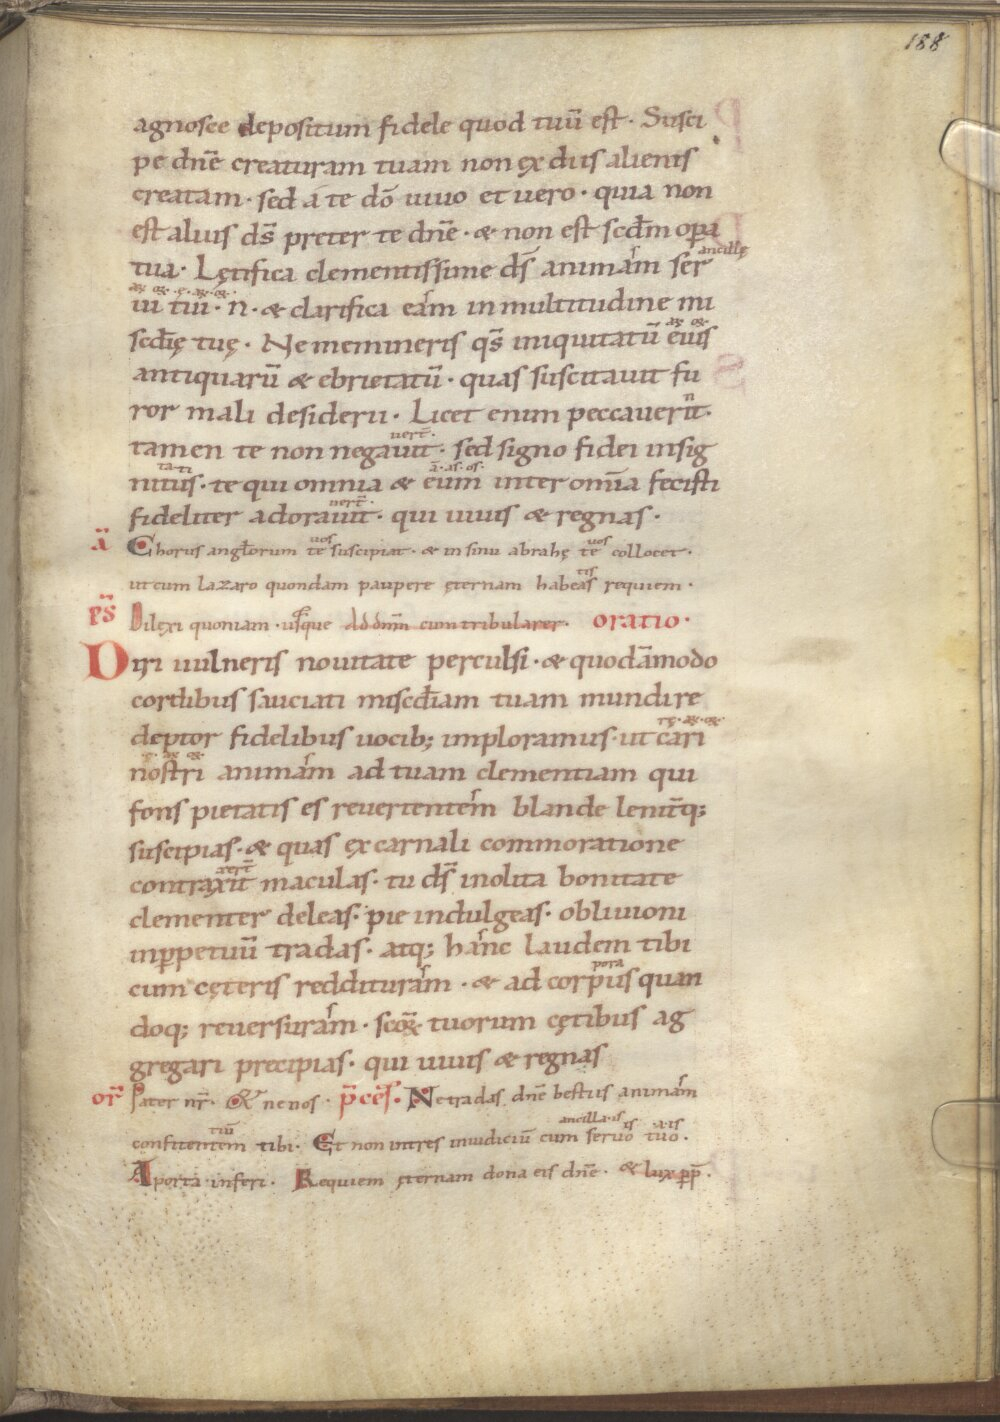 188
agnosce depositum fidele quod tuū est. Susci
pe dn̄e creaturam tuam non ex diis alienis
creatam. sed a te dō uiuo et uero. quia non
est alius ds̄ preter te dn̄e. & non est scd̄m opa
ancillę
tua. Lętifica clementissime ds̄ animam ser
ui tui. n. & clarifica eam in multitudine mi
scd̄ię tuę. Ne memineris qs̄ iniquitatū eius
antiquarū & ebrietatū. quas suscitauit fu
ror mali desiderii. Licet enim peccauerit.
tamen te non negauit. sed signo fidei insig
nitus. te qui omnia & eum inter om̄ia fecisti
fideliter adorauit. qui uiuis & regnas.
ā Chorus angl̄orum te suscipiat. & in sinu abrahę te collocet.
ut cum lazaro quondam paupere ęternam habeas requiem.
ps̄ Dilexi quoniam. usque Ad dn̄m cum tribularer. oratio.
Diri uulneris nouitate perculsi. & quodāmodo
cordibus sauciati miscd̄iam tuam mundi re
demptor fidelibus uocib; imploramus. ut cari
nostri animam ad tuam clementiam qui
fons pietatis es reuertentem blande lenit̄q;
suscipias. & quas ex carnali commoratione
contraxit maculas. tu ds̄ inolita bonitate
clementer deleas. pie indulgeas. obliuioni
inppetuū tradas. atq; hanc laudem tibi
pora
cum cęteris reddituram. & ad corpus quan
doq; reuersuram. scōꝝ tuorum cętibus ag
gregari precipias. qui uiuis & regnas
or̄ Pater nr̄. Et ne nos. p̄ces. Ne tradas dn̄e bestiis animam
ancilla. is
confitentem tibi. Et non intres in iudiciū cum seruo tuo.
A porta inferi. Requiem ęternam dona eis dn̄e. & lux pp̄.